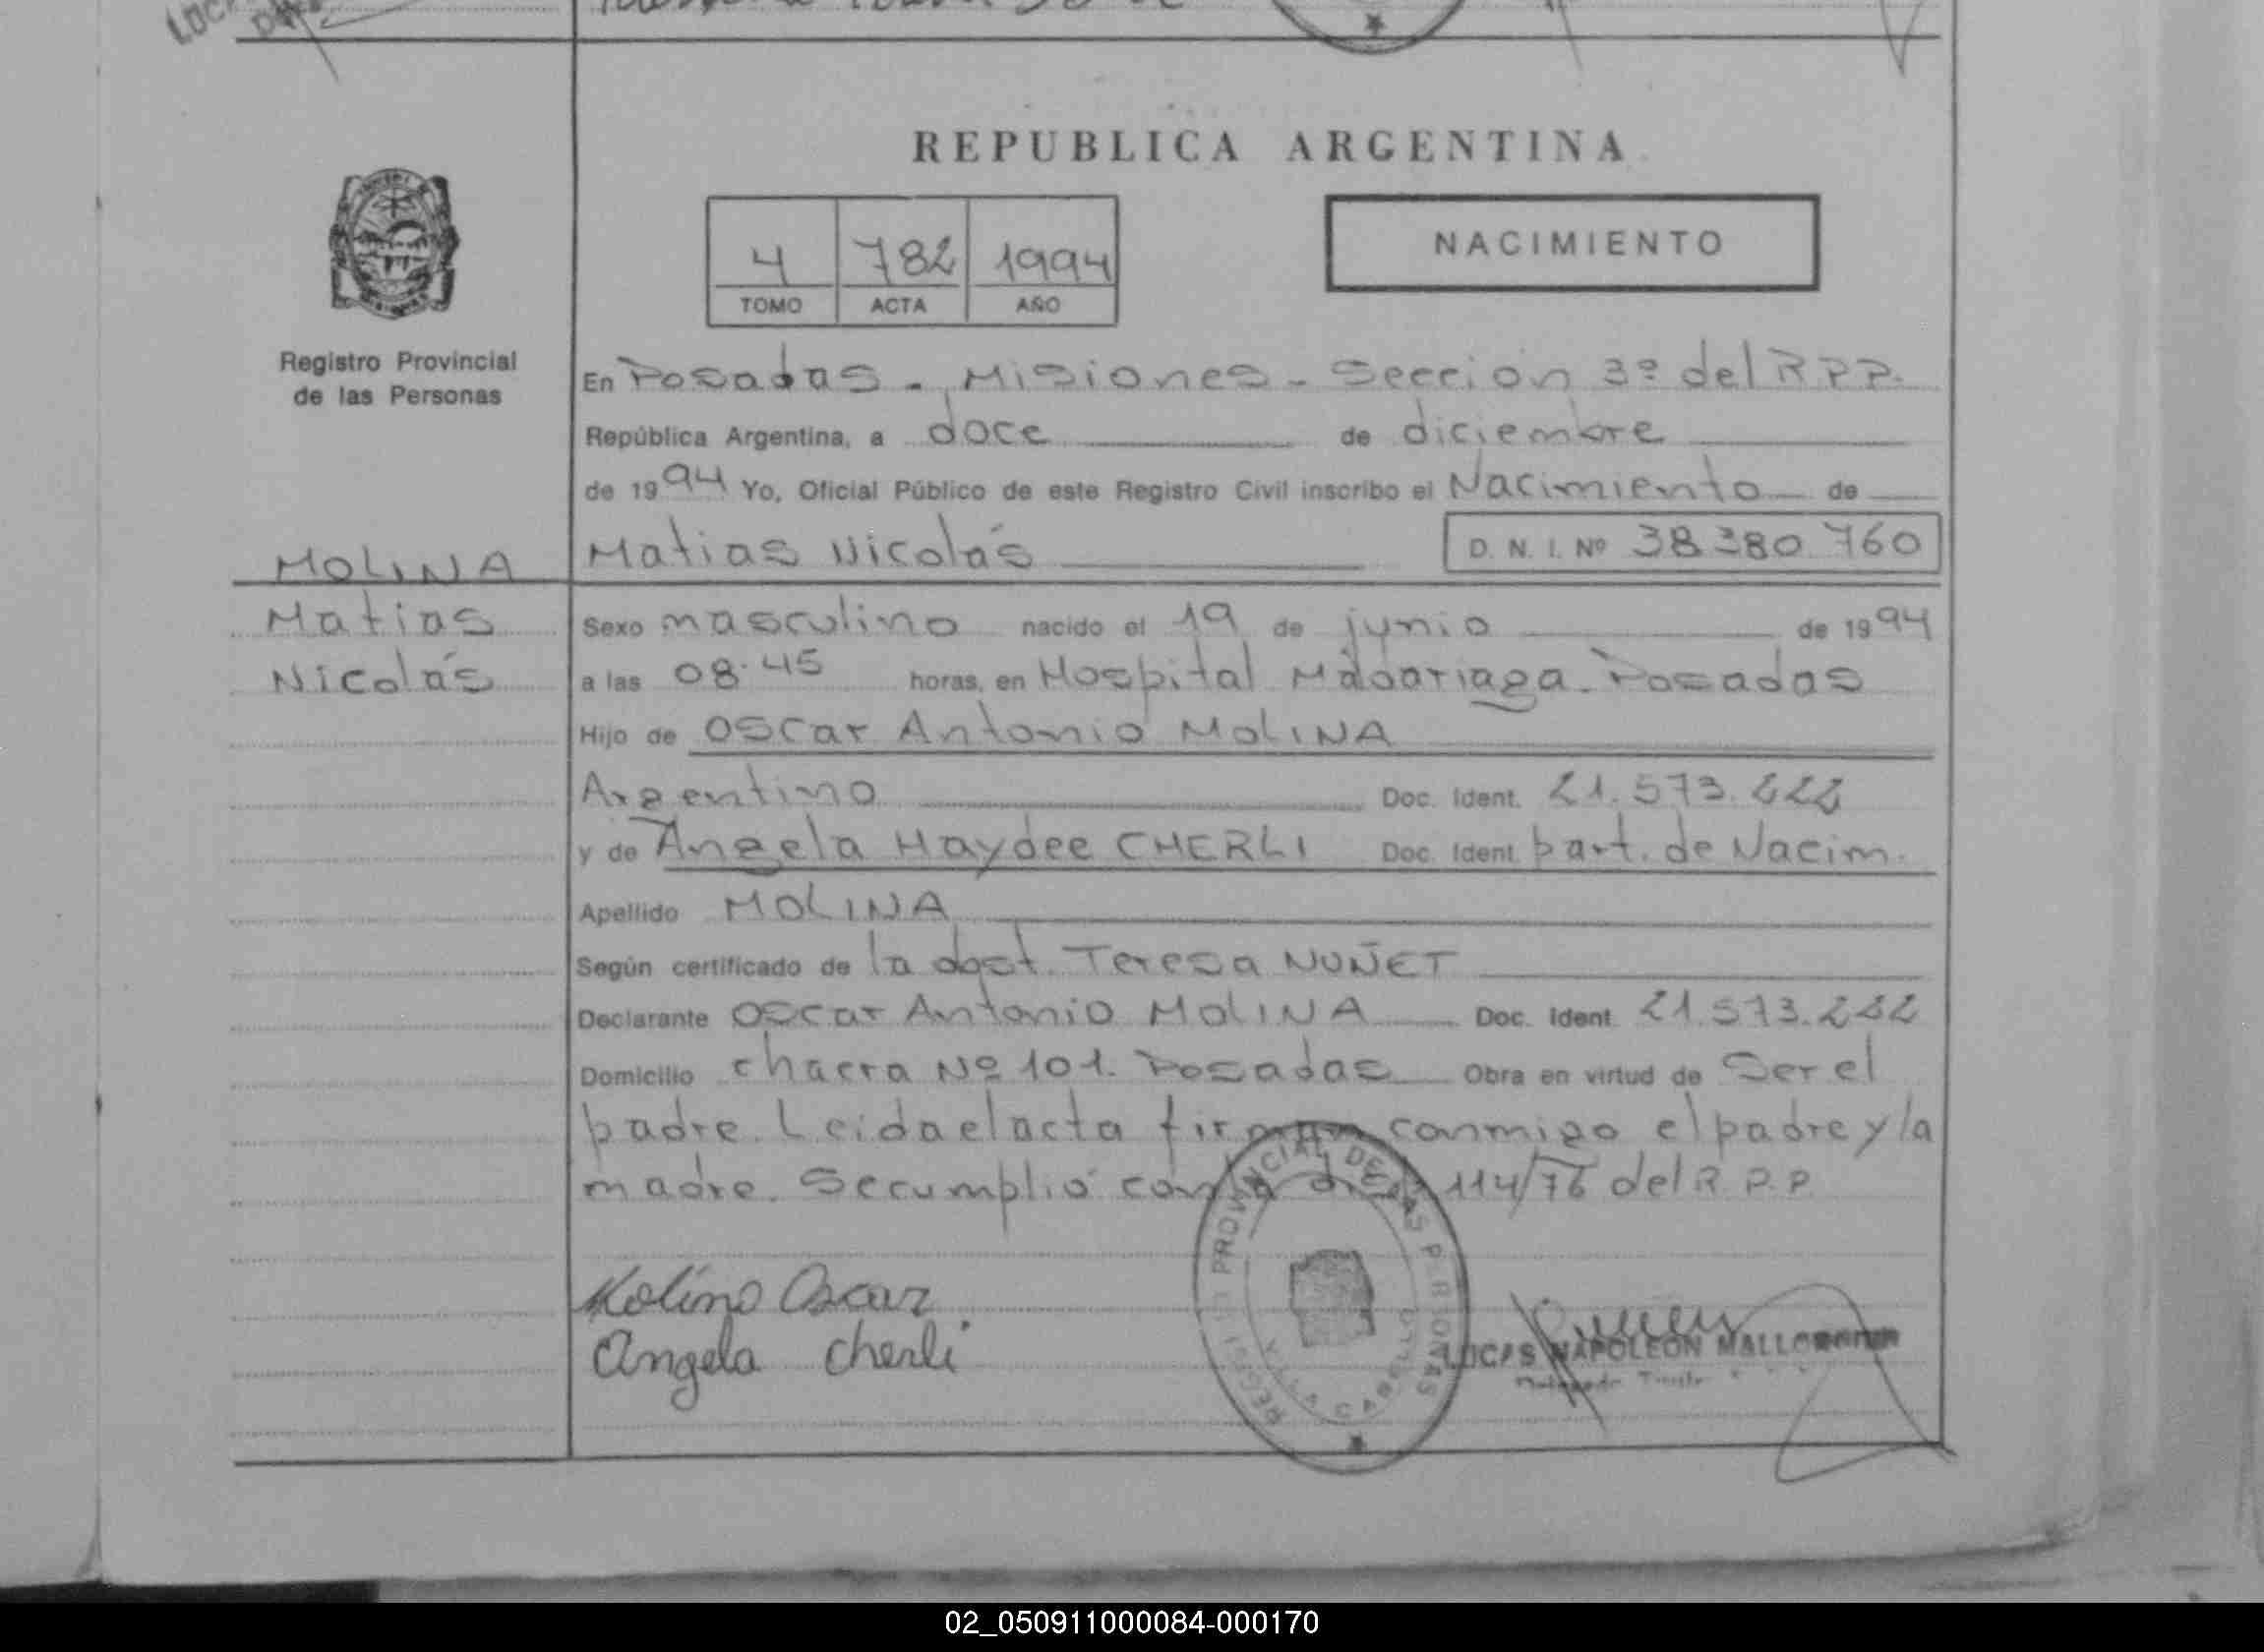 REPUBLICA ARGENTINA
4 782 1994
TOMO ACTA AÑO
NACIMIENTO
Registro Provincial
de las Personas
MOLINA
Matias
Nicolás
En Posadas - Misiones - Sección 3ª del R.P.P.
República Argentina, a doce de diciembre
de 1994 Yo, Oficial Público de este Registro Civil inscribo el Nacimiento de
Matias Nicolás D. N. I. Nº 38380760
Sexo masculino nacido el 19 de junio de 1994
a las 08.45 horas, en Hospital Madariaga. Posadas
Hijo de Oscar Antonio MOLINA
Argentino Doc. Ident. 21.573.222
y de Angela Haydee CHERLI Doc. Ident. part. de Nacim.
Apellido MOLINA
Según certificado de la obst. Teresa NUÑET
Declarante Oscar Antonio MOLINA Doc. Ident. 21.573.222
Domicilio chacra Nº 101. Posadas Obra en virtud de Ser el
padre. Leida el acta firman conmigo el padre y la
madre. Se cumplió con la 114/76 del R.P.P.
Molina Oscar
Angela Cherli
PROVINCIAL DE LAS PERSONAS
LUCAS NAPOLEON
02_050911000084-000170